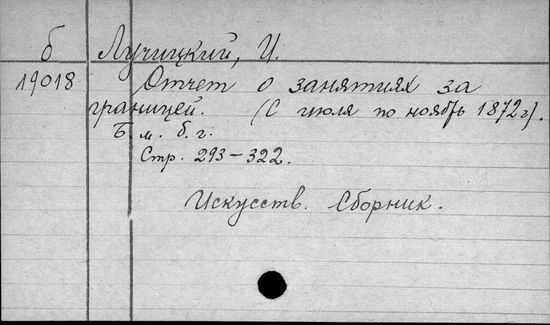 б Лучицкий, И.
19018 Отчет о занятиях за
границей. (С июля по ноябрь 1872 г).
Б. м. б. г.
Стр. 293-322.
Искусств. Сборник.